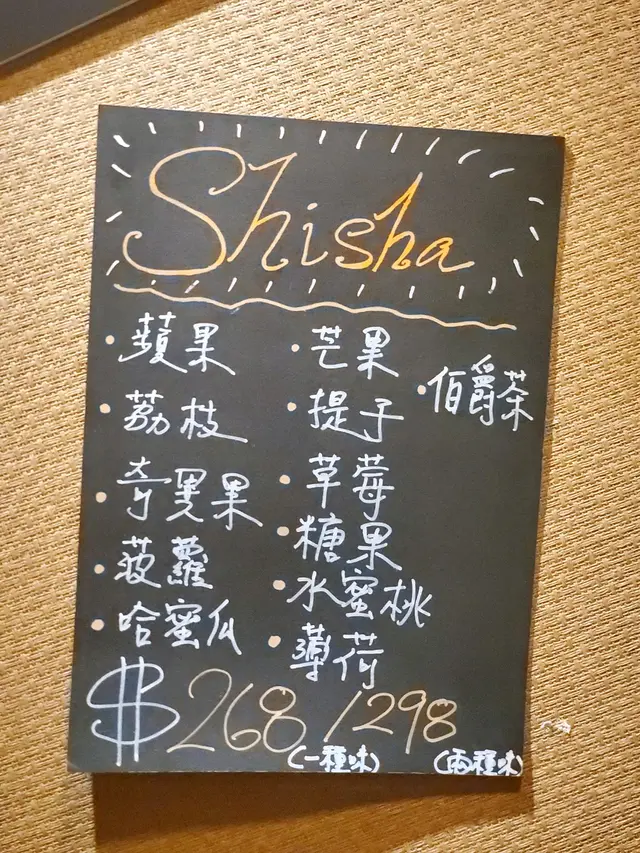 Shisha
·蘋果
·荔枝
·奇異果
·菠蘿
·哈蜜瓜
·芒果
·提子
·草莓
·糖果
·水蜜桃
·薄荷
·伯爵茶
$268/298
(一種味) (兩種味)